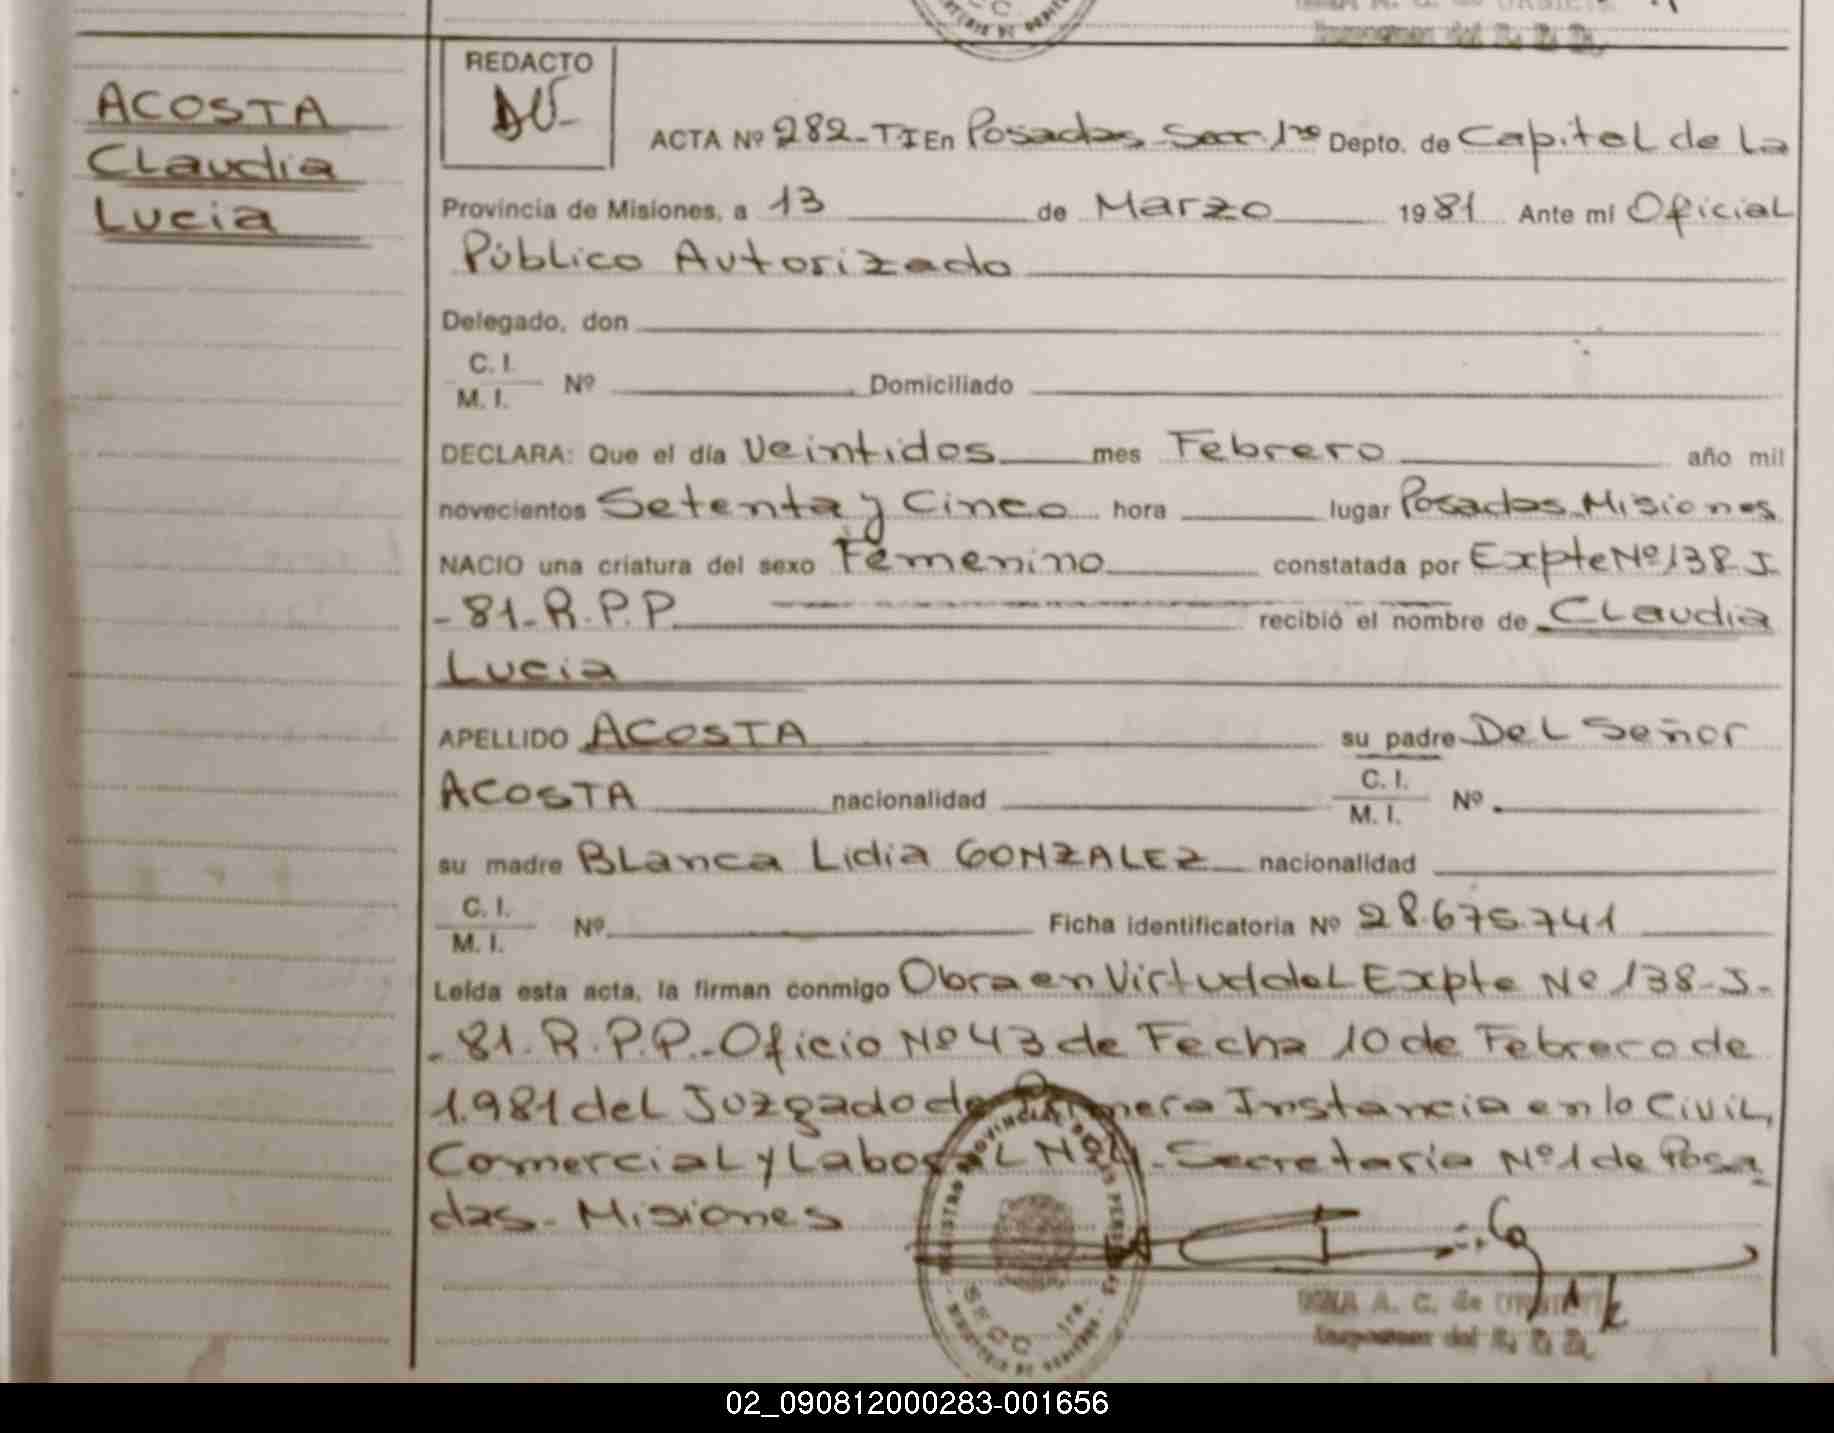 REDACTO
ACOSTA
Claudia
Lucia
ACTA Nº 282-TI En Posadas Secc. 1ra Depto. de Capital de La
Provincia de Misiones, a 13 de Marzo 1981 Ante mi Oficial
Público Autorizado
Delegado, don
C. I.
M. I. Nº Domiciliado
DECLARA: Que el día Veintidos mes Febrero año mil
novecientos Setenta y Cinco hora lugar Posadas Misiones
NACIO una criatura del sexo Femenino constatada por Expte Nº 138 J
-81-R.P.P. recibió el nombre de Claudia
Lucia
APELLIDO ACOSTA su padre Del Señor
ACOSTA nacionalidad C. I.
M. I. Nº
su madre Blanca Lidia GONZALEZ nacionalidad
C. I.
M. I. Nº Ficha identificatoria Nº 28.675.741
Leída esta acta, la firman conmigo Obra en Virtud del Expte Nº 138-J-
-81.R.P.P.-Oficio Nº 43 de Fecha 10 de Febrero de
1.981 del Juzgado de Primera Instancia en lo Civil,
Comercial y Laboral Nº 4-Secretaría Nº 1 de Posa
das-Misiones
A. C. de
del R. P. P.
02_090812000283-001656